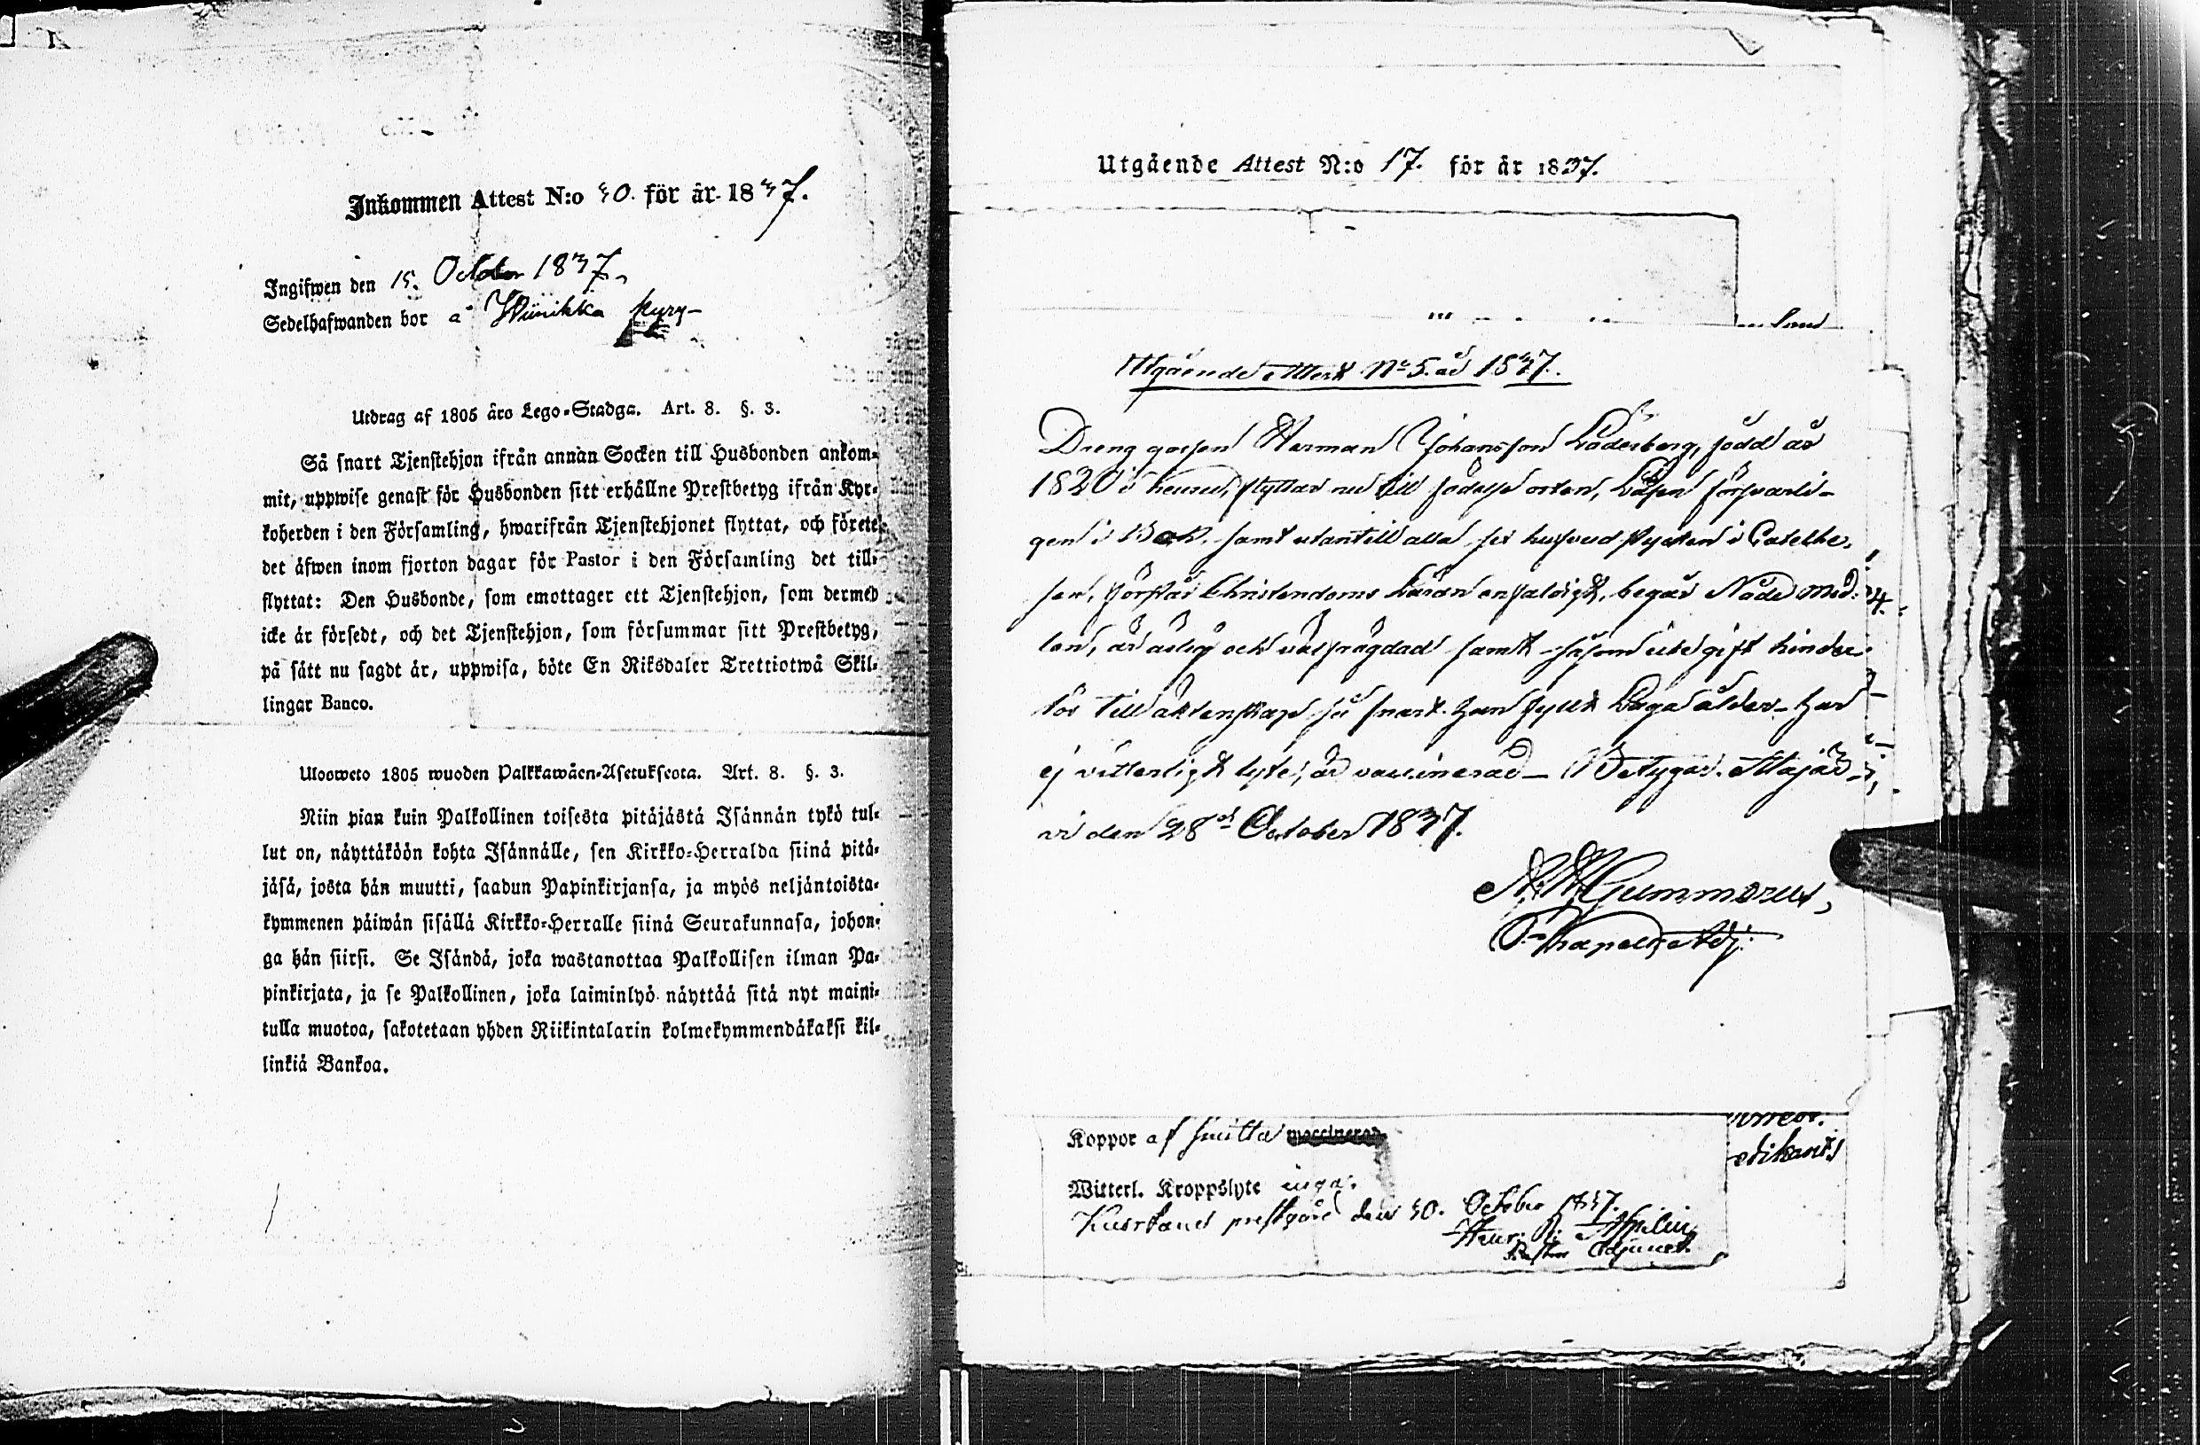 Inkommen Attest N:o 30. för år 1837.
Ingifwen den 15. October 1837.
Sedelhafwanden bor å
Utdrag af 1805 års Lego-Stadga. Art. 8. §. 3.
Så snart Tjenstehjon ifrån annan Socken till Husbonden ankom-
mit, uppwise genast för Husbonden sitt erhållne Prestbetyg ifrån Kyr-
koherden i den Församling, hwarifrån Tjenstehjonet flyttat, och förete
det äfwen inom fjorton dagar för Pastor i den Församling det till-
flyttat: Den Husbonde, som emottager ett Tjenstehjon, som dermed
icke är försedt, och det Tjenstehjon, som försummar sitt Prestbetyg,
på sätt nu sagdt är, uppwisa, böte En Riksdaler Trettiotwå Skil-
lingar Banco.
Uloosweto 1805 wuoden Palkkawäen-Asetuksesta. Art. 8. §. 3.
Niin pian kuin Palkollinen toisesta pitäjästä Isännän tykö tul-
lut on, näyttäköön kohta Isännälle, sen Kirkko-Herralda siinä pitä-
jäsä, josta hän muutti, saadun Papinkirjansa, ja myös neljäntoista-
kymmenen päiwän sisällä Kirkko-Herralle siinä Seurakunnasa, johon-
ga hän siirsi. Se Isändä, joka wastanottaa Palkollisen ilman Pa-
pinkirjata, ja se Palkollinen, joka laiminlyö näyttää sitä nyt maini-
tulla muotoa, sakotetaan yhden Riikintalarin kolmekymmendäkaksi kil-
linkiä Bankoa.
Utgående Attest N:o 17. för år 1837.
Utgående Attest No 5. år 1837.
Dreng gossen Herman Johansson Söderberg, född år
1820 i flyttar nu till födelse orten, Läser försvarli-
gen i Bok, samt utantill alla sex hufvud stycken i Cateche-
sen, förstår Christendoms Läran enfaldigt, begår Nådemed-
len, är ärlig och välfrägdad samt såsom ute gift hinder-
lös till äktenskap så snart han fyllt Laga ålder. Har
ej vitterligt lyte, är vaccinerad Betygar. Alajär-
vi den 28de October 1837.
Gummerus,
Adj:
Koppor af smitta waccinerad
Witterl. Kroppslyte inga.
prestgård den 30. October 1837.
Pastors Adjunct.